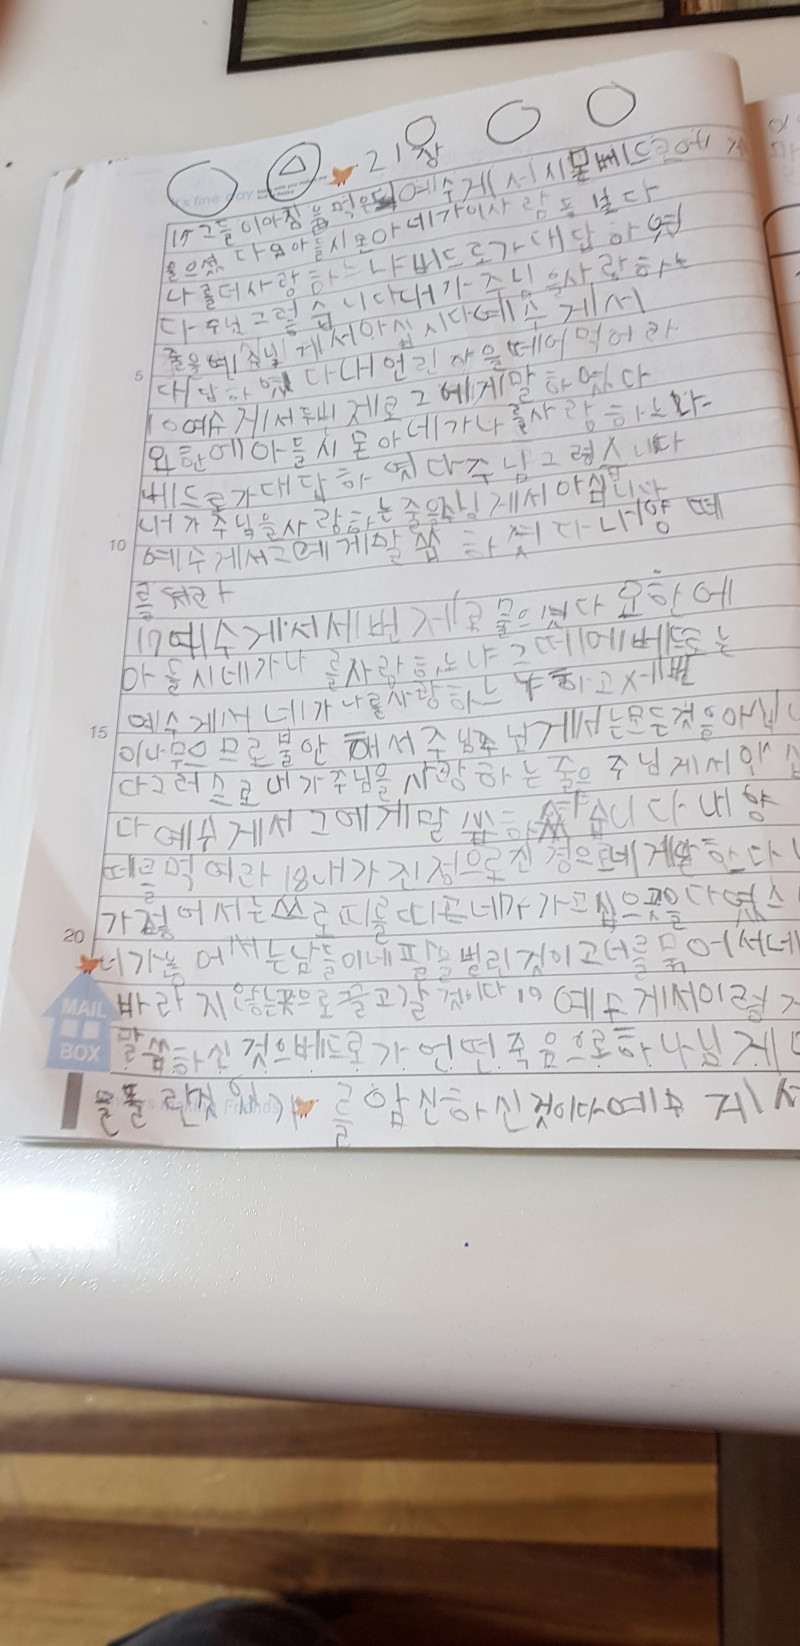 21장
15 그들이아침을먹은뒤예수게서시몬베드로에게
물으셨다요아들시몬아네가이사람들보다
나를더사랑하느냐베드로가대답하엿
다주님그렇습니다내가주님을사랑하는
줄을예주님게서아십시다예수게서
대답하였다내언린자을떼어먹여라
10예수게서두번제로그에게말하였다
요한에아들시몬아네가나를사랑하느냐
베드로가대답하엿다주님그렇시니다
내가주님을사랑하는줄을주님게서아십니다
예수게서그에게말씁하셧다나양떼
를쳐라
17예수게서세번제로물으셨다요한에
아들시네가나를사랑하느냐그떼에베드로는
예수게서네가나를사랑하느냐하고세번
이나무으므로불안해서주님주님게서는모든것을아십니
다그러스로내가주님을사랑하는줄은주님게서아십
다예수게서그에게말씁하셨습니다내양
떼를먹여라18내가진정으로진정으로네게말한다
가젊어서는스로띠를띠고네가가고십으곳을다녔스
너가늙어서는남들이네팔을벌릴것이고너를묶어서네
바라지않는곳으로끌고갈것이다19예수게서이렇
말씀하신것으베드로가언떤죽음으로하나님게
를암신하신것이다예수게서
5
10
15
20
MAIL
BOX